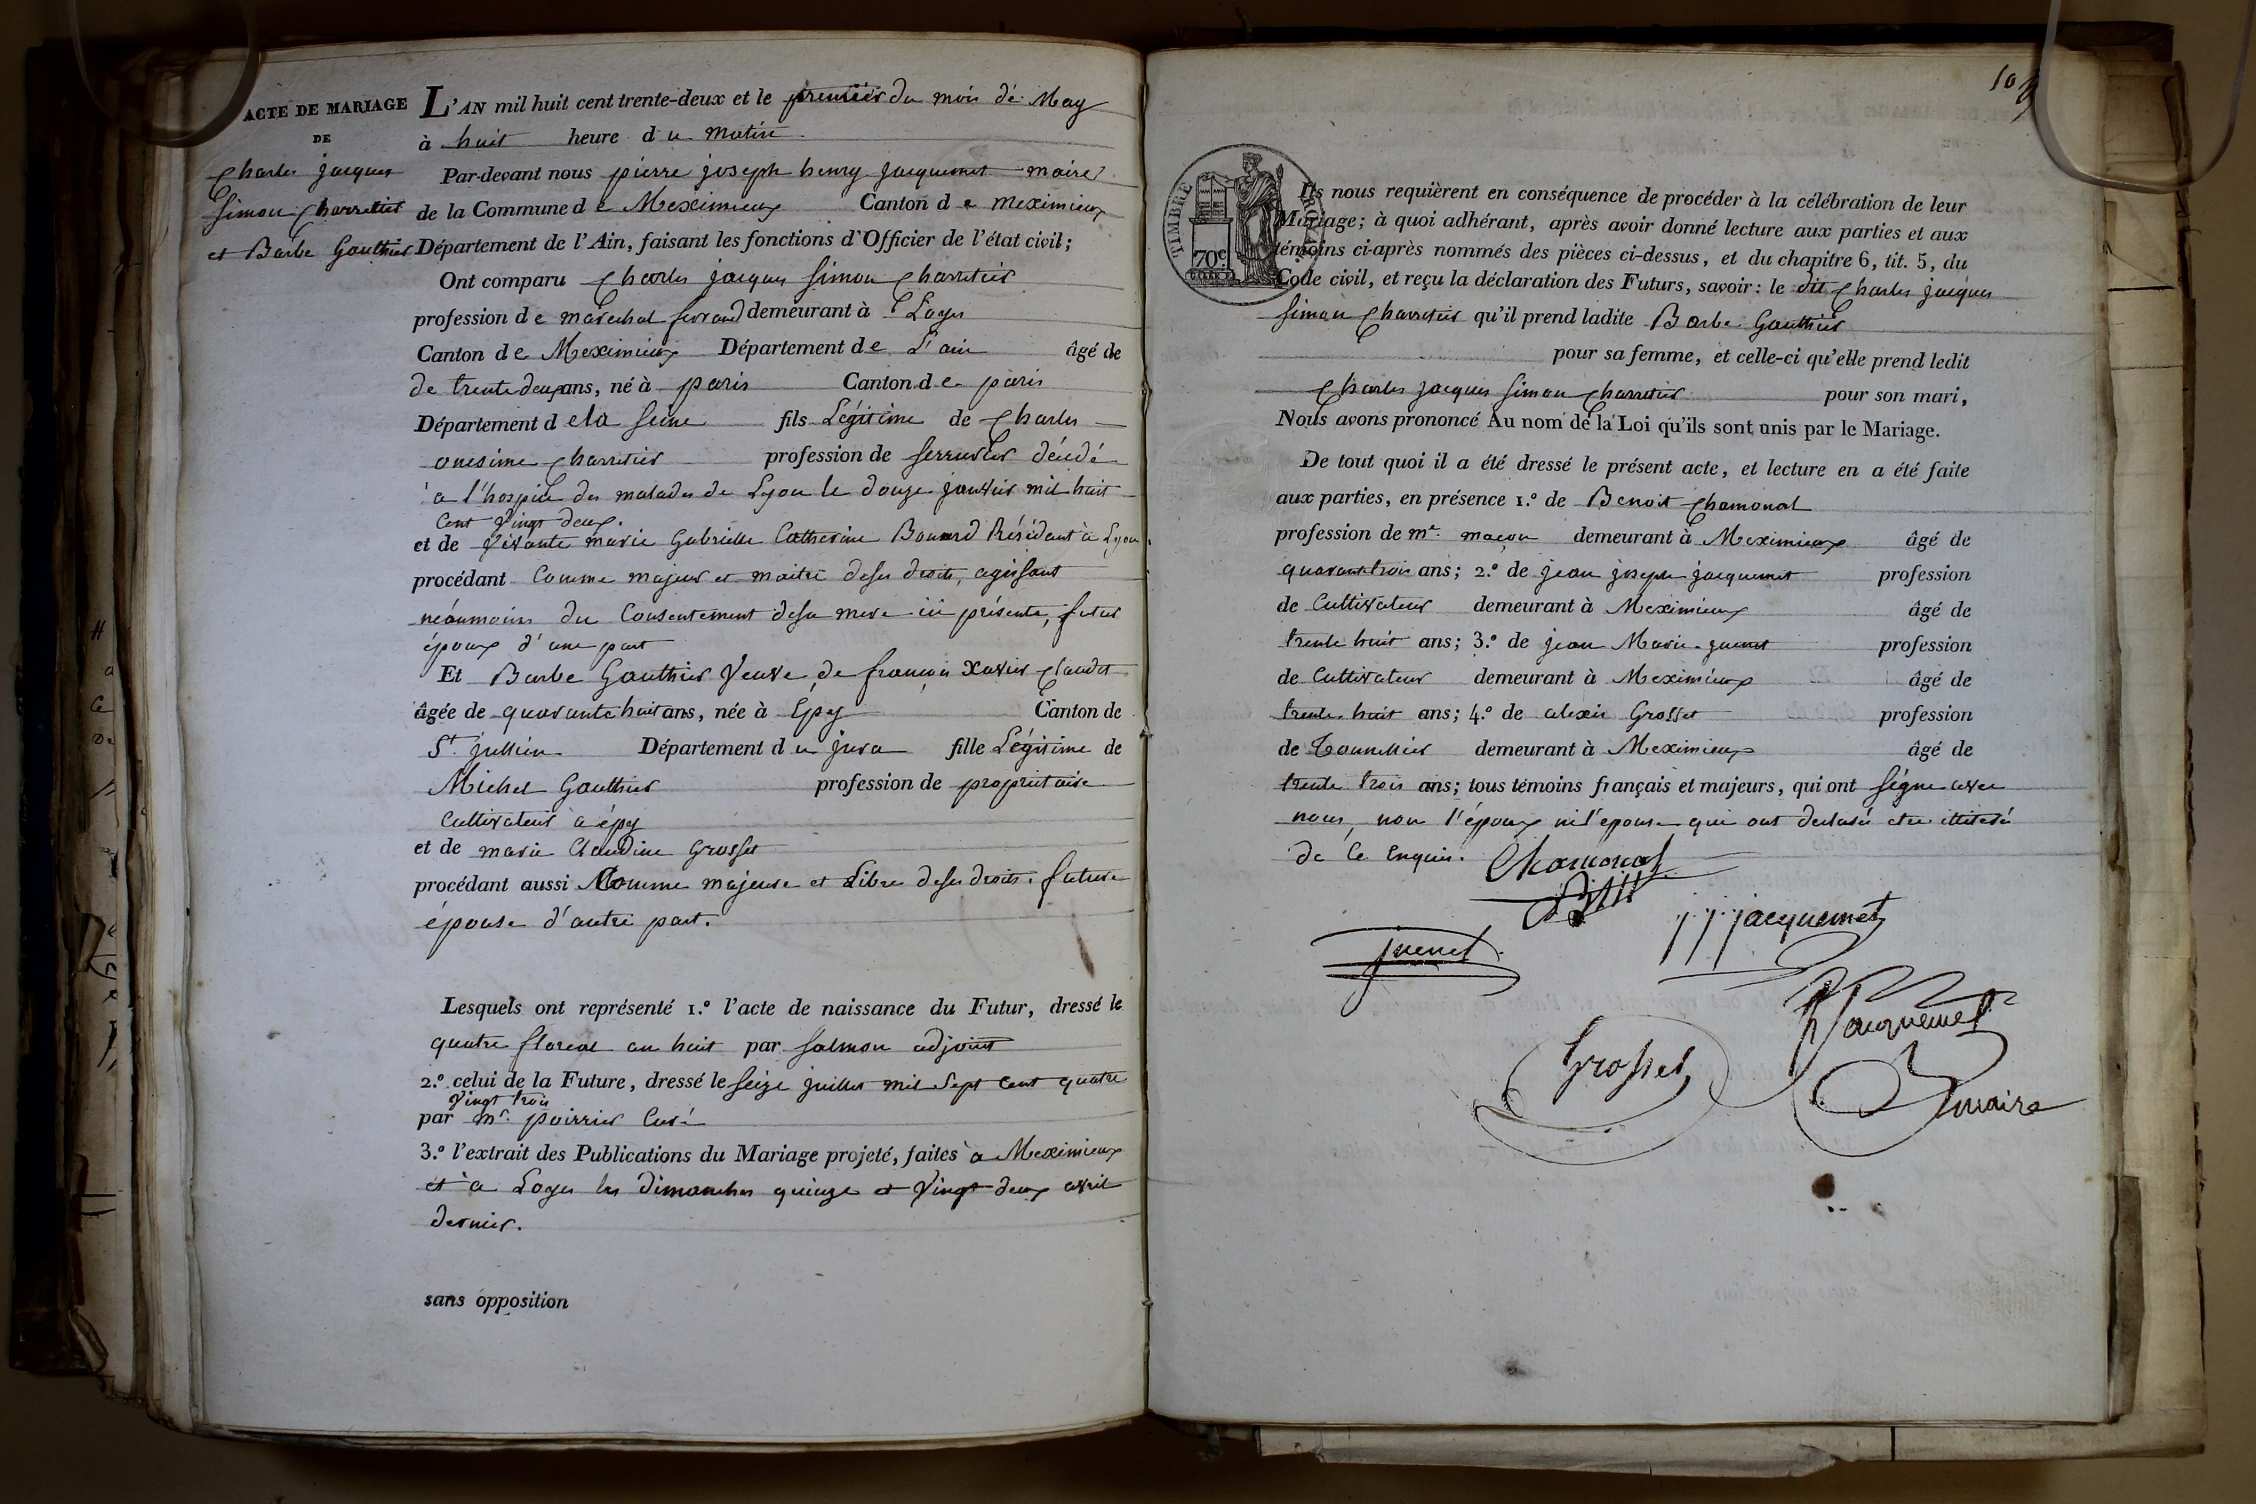 ACTE DE MARIAGE
DE
Charles jacques
Simon Charretier
et Barbe Gauthier
L'AN mil huit cent trente-deux et le premier du mois de May
à huit heure du matin
Par-devant nous pierre joseph henry jacquemet maire
de la Commune de Meximieux Canton de meximieux
Département de l'Ain, faisant les fonctions d'Officier de l'état civil;
Ont comparu Charles jacques Simon Charretier
profession de marechal ferrand demeurant à Loyes
Canton de Meximieux Département de L'ain âgé de
de trente deux ans, né à paris Canton de paris
Département de la Seine fils Légitime de Charles
onesime Charretier profession de serrurier décédé
a l'hospice des malades de Lyon le douze janvier mil huit
Cent Vingt deux.
et de Vivante marie Gabrielle Catherine Résidant à Lyon
procédant Comme majeur et maitre de ses droits, agissant
néanmoins du Consentement de sa mere ici présente, futur
époux d'une part
Et Barbe Gauthier Veuve de françois Xavier Claudet
âgée de quarante huit ans, née à Epy Canton de
St. jullien Département du jura fille Légitime de
Michel Gauthier profession de propriétaire
Cultivateur a épy
et de marie Claudine Grosset
procédant aussi Comme majeure et Libre de ses droits. future
épouse d'autre part.
Lesquels ont représenté 1.º l'acte de naissance du Futur, dressé le
quatre floreal an huit par Salmon adjoint
2.º celui de la Future, dressé le Seize juillet mil Sept Cent quatre
Vingt trois
par mr. poirrier Curé
3.º l'extrait des Publications du Mariage projeté, faites à Meximieux
et à Loyes les Dimanches quinze et Vingt deux avril
dernier.
sans opposition
TIMBRE ROYAL
70c.
Ils nous requièrent en conséquence de procéder à la célébration de leur
Mariage; à quoi adhérant, après avoir donné lecture aux parties et aux
témoins ci-après nommés des pièces ci-dessus, et du chapitre 6, tit. 5, du
Code civil, et reçu la déclaration des Futurs, savoir: le dit Charles jacques
Simon Charretier qu'il prend ladite Barbe Gauthier
pour sa femme, et celle-ci qu'elle prend ledit
Charles jacques Simon Charretier pour son mari,
Nous avons prononcé Au nom de la Loi qu'ils sont unis par le Mariage.
De tout quoi il a été dressé le présent acte, et lecture en a été faite
aux parties, en présence 1.º de Benoit Chamonal
profession de me. maçon demeurant à Meximieux âgé de
quarante trois ans; 2.º de jean joseph jacquemet profession
de Cultivateur demeurant à Meximieux âgé de
trente huit ans; 3.º de jean Marie juenet profession
de Cultivateur demeurant à Meximieux âgé de
trente huit ans; 4.º de alexis Grosset profession
de Tonnellier demeurant à Meximieux âgé de
trente trois ans; tous témoins français et majeurs, qui ont Signé avec
nous, non l'époux ni l'épouse qui ont déclaré etre illiteré
de Ce Enquis.
Chamonal
j j jacquemet
juenet
h Jacquemet
Grosset
maire